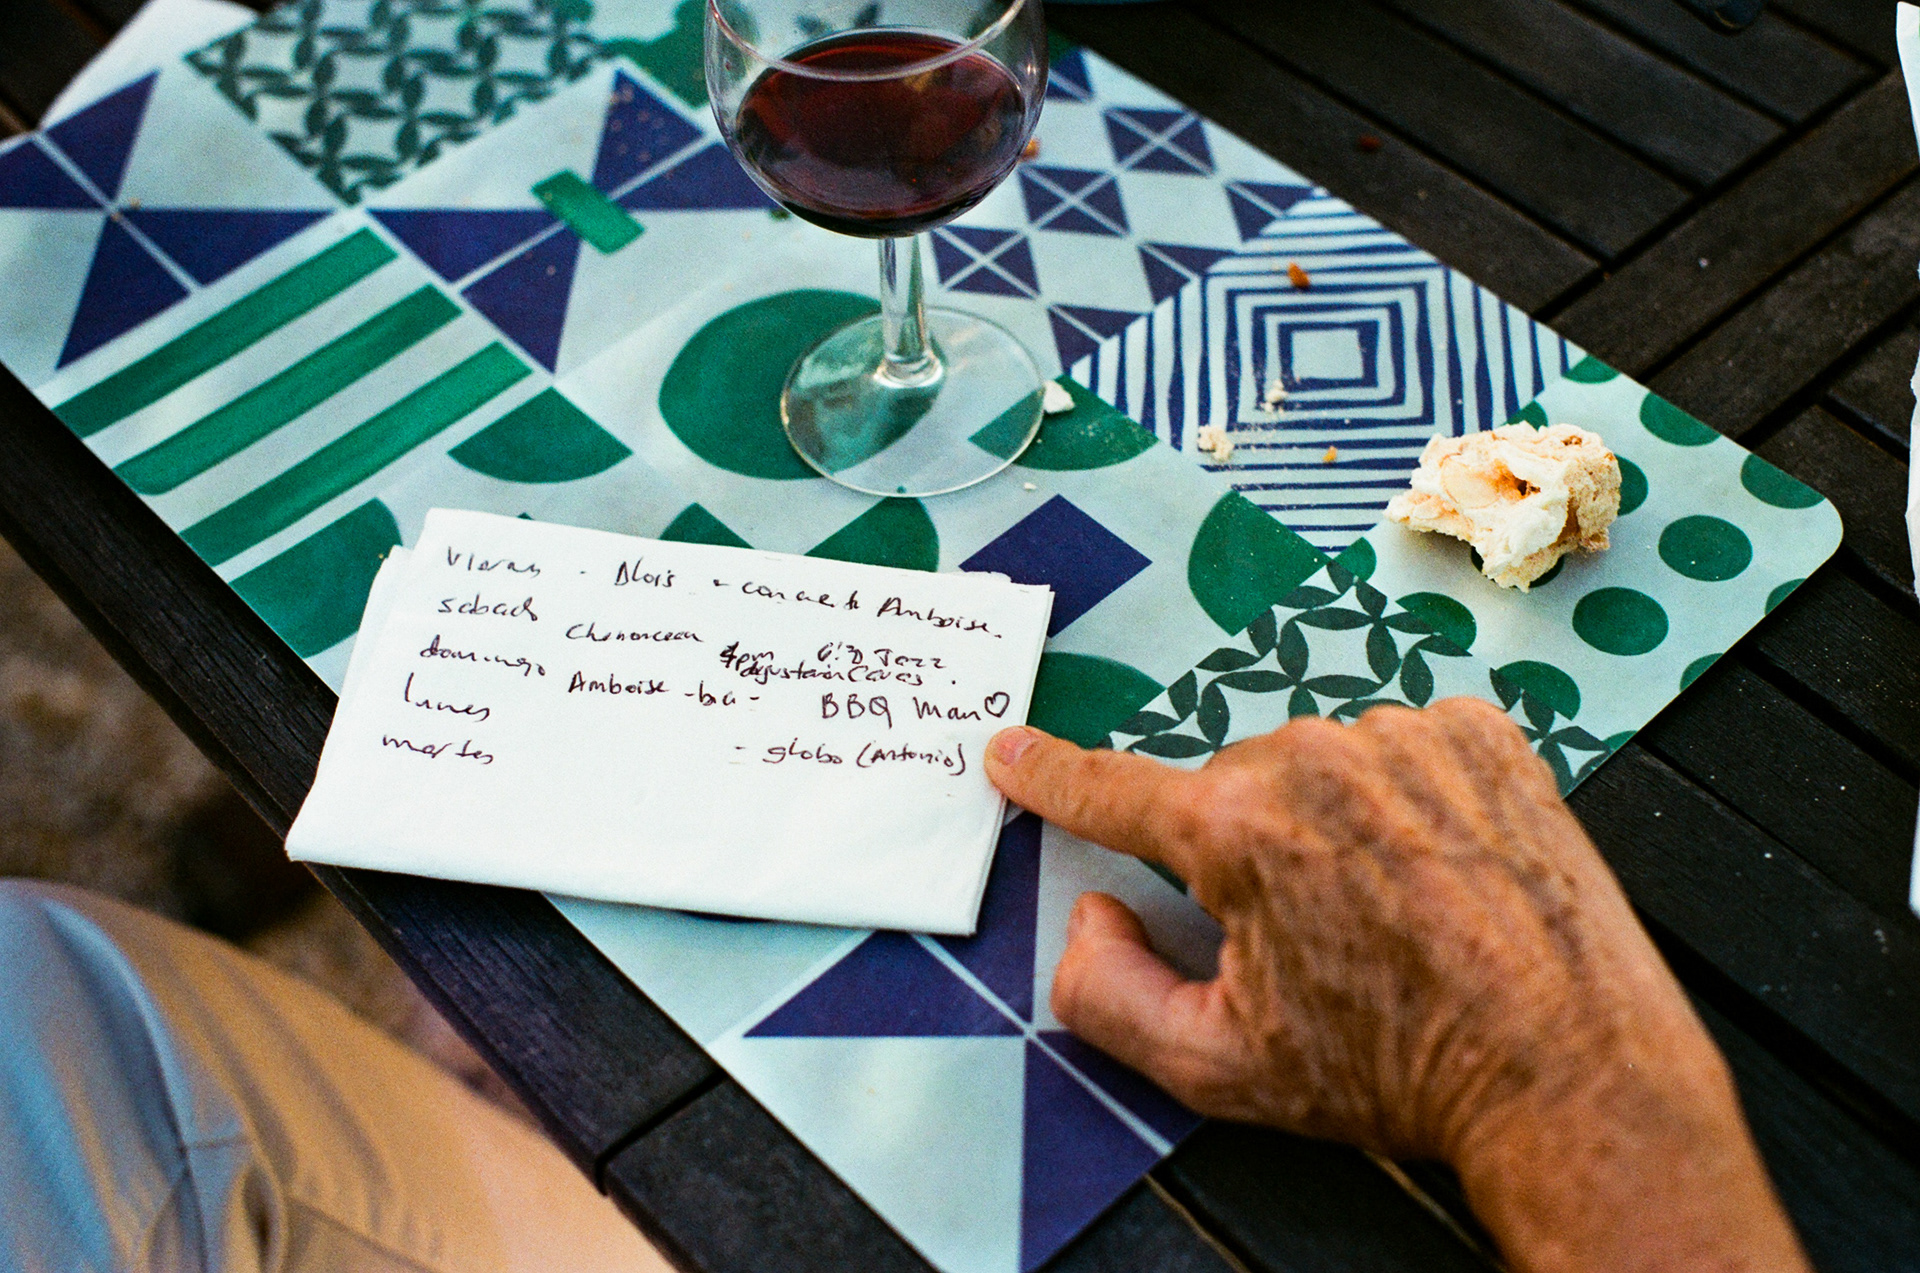 Viernes - Blois - concierto Amboise.
sabado Chenonceau 4pm 6:30 Jazz
degustación Cavas.
domingo Amboise - bici - BBQ Man♡
lunes
martes - globo (Antonio)